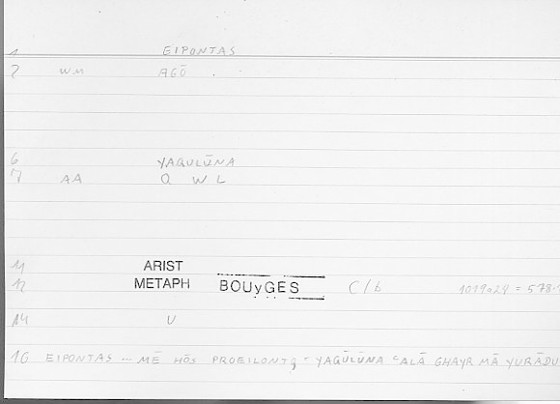 1 EIPONTAS
2 WM AGŌ .
6 YAQŪLŪNA
7 AA Q W L
11 ARIST
12 METAPH BOUyGES C/b 1019a24 = 578.
14 V
16 EIPONTAS — MĒ HŌS PROEILONTO YAQŪLŪNA ʿALĀ GHAYR MĀ YURĀDU